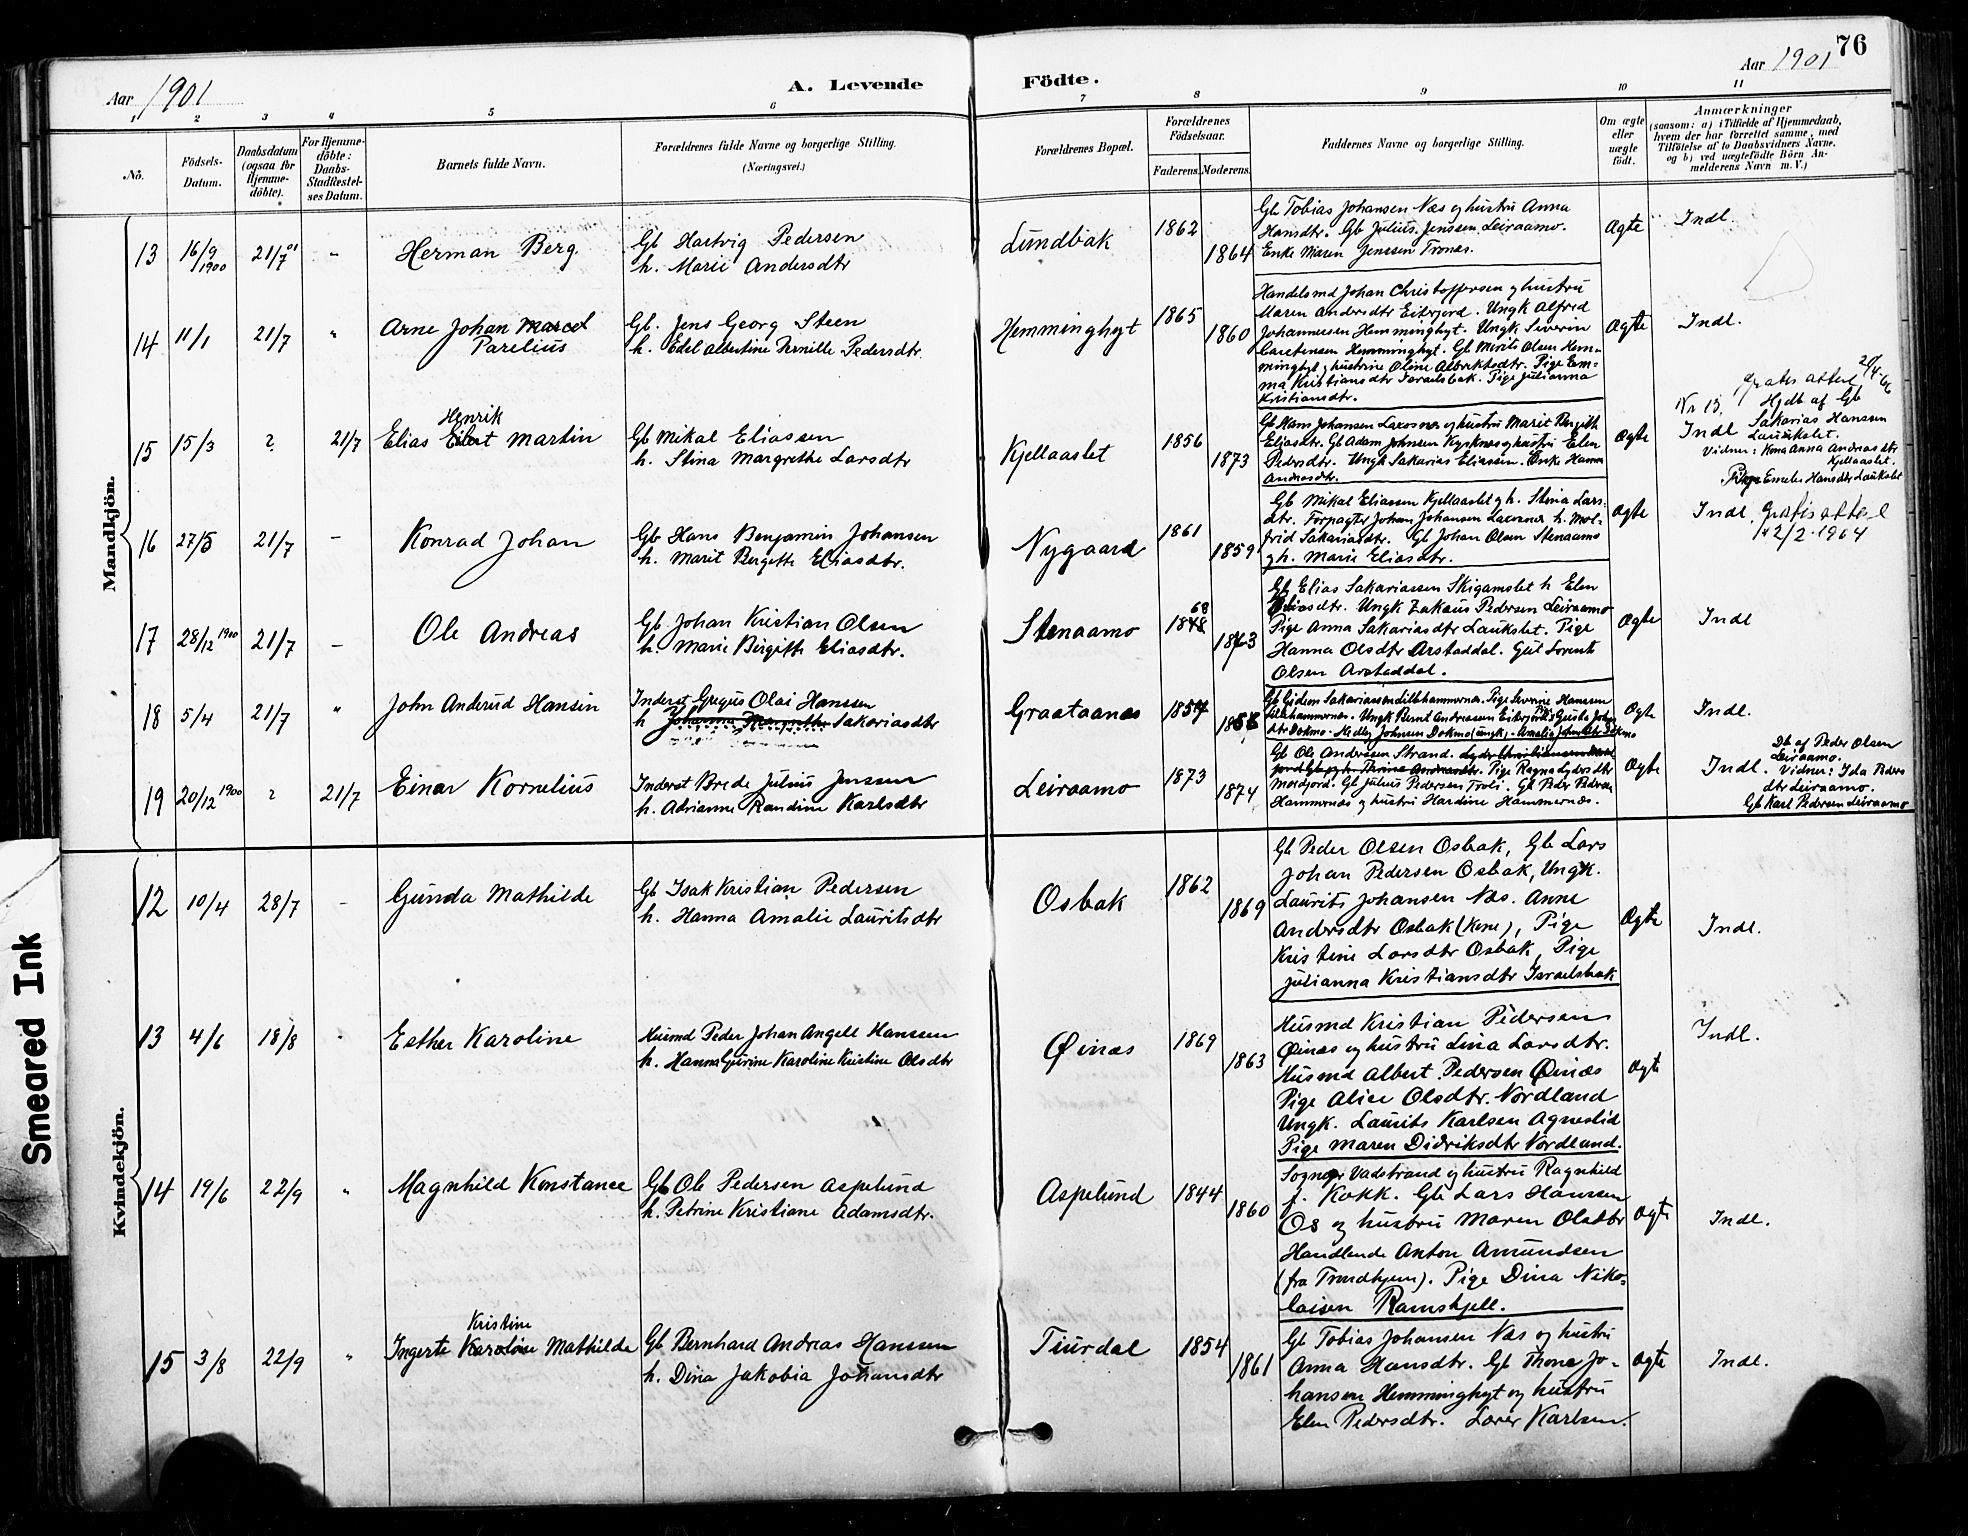 76
Aar 1901
A. Levende Födte.
Aar 1901
1 2 3 4 5 6 7 8 9 10 11
No.
Födsels-Datum.
Daabsdatum (ogsaa for Hjemme-döbte).
For Hjemme-döbte: Daabs-Stadfæstel-ses Datum.
Barnets fulde Navn.
Forældrenes fulde Navne og borgerlige Stilling. (Næringsvei.)
Forældrenes Bopæl.
Forældrenes Födselsaar.
Faderens. Moderens.
Faddernes Navne og borgerlige Stilling.
Om ægte eller uægte födt.
Anmærkninger
(saasom: a) i Tilfælde af Hjemmedaab,
hvem der har forrettet samme, med
Tilföielse af to Daabsvidners Navne,
og b) ved uægtefödte Börn An-
melderens Navn m. V.)
Mandkjön.
13 16/9 1900 21/7 01 "
Herman Berg
Gb Hartvig Pedersen
h. Marie Andersdtr
Lundbak
1862 1864
Gb Tobias Johansen Næs og hustru Anna
Hansdtr. Gb Julius Jenssen Leiraamo.
Enke Maren Jenssen Tronæs.
Ægte Indl.
14 11/1 21/7 "
Arne Johan Marcel
Parelius
Gb. Jens Georg Steen
h. Edel Albertine Pernille Pedersdtr.
Hemminghyt
1865 1860
Handelsmd Johan Christoffersen og hustru
Maren Andersdtr Eiterjord. Ungk Alfred
Johannesen Hemminghyt. Ungk Severin
Carstensen Hemminghyt. Gb Mirits Olsen Hem-
minghyt og hustru Oline Albriktsdtr. Pige Em-
ma Kristiansdtr Israelsbak. Pige Julianna
Kristiansdtr.
Ægte Indl.
15 15/3 ? 21/7
Henrik
Elias Eilert Martin
Gb Mikal Eliassen
h. Stina Margrethe Larsdtr
Kjellaaslet
1856 1873
Gb Hans Johansen og hustru Marit Bergith
Eliasdtr. Gb Adam Johnsen og hustru Elen
Pedersdtr. Ungk Sakarias Eliassen. Enke Hanna
Andreasdtr.
Ægte
Nr 15. Hjdb af Gb
Indl Sakarias Hanssen
Laukslet.
Vidner: Kona Anna Andreasdtr
Kjellaaslet.
Pige Emelie Hansdtr Laukslet
16 27/5 21/7 -
Konrad Johan
Gb Hans Benjamin Johansen
h. Marit Bergette Eliasdtr.
Nygaard
1861 1859
Gb Mikal Eliassen Kjellaaslet og h. Stina Lars-
dtr. Forpagter Johan Johansen h. Mol-
frid Sakariasdtr. Gb Johan Olsen Stenaamo
og h. Marie Eliasdtr.
Ægte Indl. Gratis attest
12/2.1964
17 28/12 1900 21/7 -
Ole Andreas
Gb Johan Kristian Olsen
h. Marie Birgitte Eliasdtr.
Stenaamo
68
1848 1863
Gb Elias Sakariassen Skigamslet h Elen
Eliasdtr. Ungk Zakæus Pedersen Leiraamo
Pige Anna Sakariasdtr Laukslet. Pige
Hanna Olsdtr Arstaddal. Gut Lorents
Olsen Arstaddal.
Ægte Indl
18 5/4 21/7 "
John Anderud Hansen
Inderst Gregus Olai Hanssen
h Johanna Margrethe Sakariasdtr
Graataanes
1857 1858
Ægte Indl.
19 20/12 1900 ? 21/7
Einar Kornelius
Inderst Brede Julius Jenssen
h. Adrianne Randine Karlsdtr
Leiraamo
1873 1874
Gb Ole Anderssen Strand. Pige Ragna Lydersdtr
Mordjord. Gb Julius Pedersen Troli. Gb Peder Pedersen
Hammernæs og hustru Hardine Hammernæs.
Ægte Indl.
Db af Peder Olsen
Leiraamo.
Vidner: Ida Peders
dtr Leiraamo.
Gb Karl Pedersen Leiraamo
Kvindekjön.
12 10/4 28/7 -
Gunda Mathilde
Gb Isak Kristian Pedersen
h. Hanna Amalie Lauritsdtr
Osbak
1862 1869
Gb Peder Olsen Osbak, Gb Lars
Johan Pedersen Osbak, Ungk.
Laurits Johansen Næs. Anne
Andersdtr Osbak (Kone), Pige
Kristine Larsdtr Osbak, Pige
Julianna Kristiansdtr Israelsbak
Ægte Indl.
13 4/6 18/8 "
Esther Karoline
Husmd Peder Johan Angell Hanssen
h. Hanna Gurine Karoline Kristine Olsdtr
Øinæs
1869 1863
Husmd Kristian Pedersen
Øinæs og hustru Lina Larsdtr.
Husmd Albert Pedersen Øinæs
Pige Alice Olsdtr. Nordland
Ungk. Laurits Karlsen Agneslid
Pige Maren Didriksdtr Nordland.
Ægte Indl.
14 19/6 22/9 "
Magnhild Konstance
Gb Ole Pedersen Aspelund
h. Petrine Kristiane Adamsdtr.
Aspelund
1844 1860
Sognepr Vadstrand og hustru Ragnhild
f. Kokk. Gb Lars Hanssen
Os og hustru Maren Olsdtr
Handlende Anton Amundsen
(fra Trondhjem). Pige Dina Niko-
laisen Ramskjell.
Ægte Indl.
15 3/8 22/9 "
Kristine
Ingerte Karoline Mathilde
Gb Bernhard Andreas Hanssen
h. Dina Jakobia Johansdtr
Tiurdal
1854 1861
Gb Tobias Johansen Næs og hustru
Anna Hansdtr. Gb Thone Jo-
hansen Hemminghyt og hustru
Elen Pedersdtr. Lærer Karlsen.
Ægte Indl.
Smeared Ink